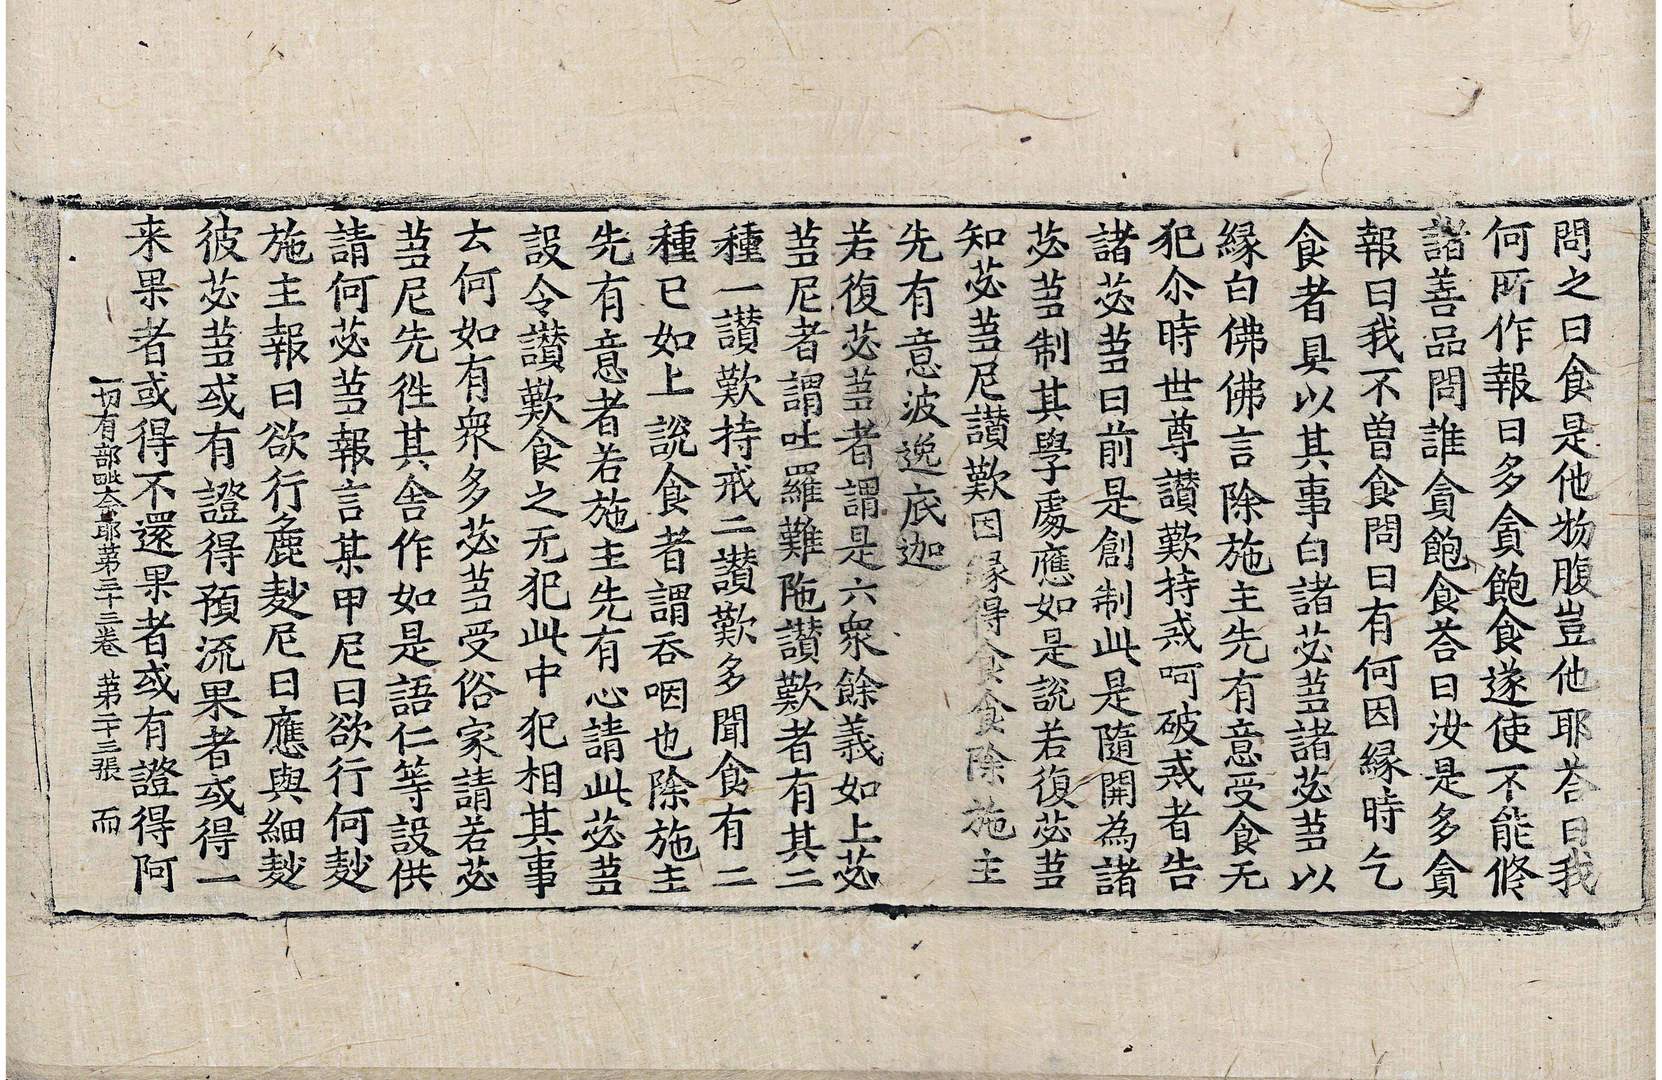 問之曰食是他物腹豈他耶荅曰我
何所作報曰多貪飽食遂使不能修
諸善品問誰貪飽食荅曰汝是多貪
報曰我不曾食問曰有何因緣時乞
食者具以其事白諸苾芻諸苾芻以
緣白佛佛言除施主先有意受食无
犯尒時世尊讃歎持戒呵破戒者告
諸苾芻曰前是創制此是隨開為諸
苾芻制其學處應如是説若復苾芻
知苾芻尼讃歎因緣得食食除施主
先有意波逸底迦
若復苾芻者謂是六衆餘義如上苾
芻尼者謂吐羅難陁讃歎者有其二
種一讃歎持戒二讃歎多聞食有二
種已如上説食者謂吞咽也除施主
先有意者若施主先有心請此苾芻
設令讃歎食之无犯此中犯相其事
云何如有衆多苾芻受俗家請若苾
芻尼先徃其舍作如是語仁等設供
請何苾芻報言某甲尼曰欲行何麨
施主報曰欲行麁麨尼曰應與細麨
彼苾芻或有證得預流果者或得一
来果者或得不還果者或有證得阿
一切有部毗奈耶苐三十三卷 苐二十三張 而